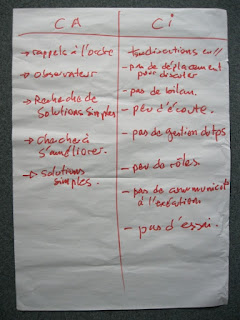 CA
→ rappels à l'ordre
→ observateur
→ Recherche de
solutions simples
→ Chercher à
s'améliorer.
→ Solutions
simples.
Ci
- discussions en //
- pas de déplacement
pour discuter
- pas de bilan.
- peu d'écoute.
- pas de gestion du tps
- peu de rôles.
- pas de communicat°
à l'exécution.
- pas d'essai.